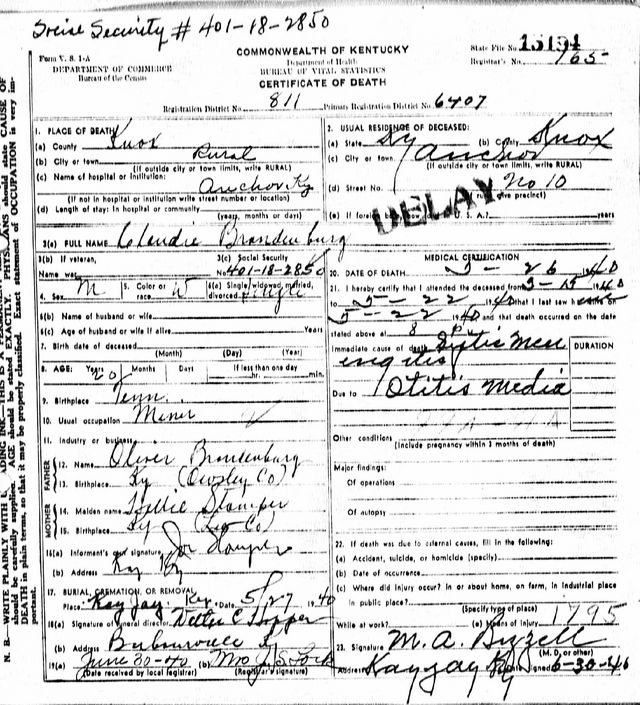 Socise Security # 401-18-2850
Form V. S. 1-A
DEPARTMENT OF COMMERCE
Bureau of the Census
COMMONWEALTH OF KENTUCKY
Department of Health
BUREAU OF VITAL STATISTICS
CERTIFICATE OF DEATH
State File No. 15194
Registrar's No. 165
Registration District No. 811 Primary Registration District No. 6407
1. PLACE OF DEATH
(a) County Knox
(b) City or town Rural
(If outside city or town limits, write RURAL)
(c) Name of hospital or institution:
Anchor Ky
(If not in hospital or institution write street number or location)
(d) Length of stay: In hospital or community
(years, months or days)
2. USUAL RESIDENCE OF DECEASED:
(a) State Ky (b) County Knox
(c) City or town Anchor
(If outside city or town limits, write RURAL)
(d) Street No. No 10
(If rural give precinct)
(e) If foreign U. S. A.? years
DELAY
3(a) FULL NAME Claudie Brandenburg
3(b) If veteran,
Name war
3(c) Social Security
No. 401-18-2850
4. Sex M
5. Color or race W
6(a) Single, widowed, married, divorced Single
6(b) Name of husband or wife
6(c) Age of husband or wife if alive Years
7. Birth date of deceased
(Month) (Day) (Year)
8. AGE: Years 20 Months Days If less than one day hr. min.
9. Birthplace Tenn.
10. Usual occupation Miner
11. Industry or business
FATHER
12. Name Oliver Brandenburg
13. Birthplace Ky (Owsley Co)
MOTHER
14. Maiden name Stamper
15. Birthplace Ky (Lee Co)
16(a) Informant's own signature Joe Stamper
(b) Address Kay Ky
17. BURIAL, CREMATION, OR REMOVAL
Place Kay Jay Date 5/27 1940
18(a) Signature of funeral director Hopper
(b) Address Barbourville Ky
19(a) June 30-40 (b) Mrs J. S. Lock
(Date received by local registrar) (Registrar's signature)
MEDICAL CERTIFICATION
20. DATE OF DEATH 5-26 1940
21. I hereby certify that I attended the deceased from 5-15 1940
to 5-22 1940 that I last saw
5-22 1940 and that death occurred on the date
stated above at 8 P m.
Immediate cause of death Septis Men
engitis
Due to Otitis Media
DURATION
Other conditions
(Include pregnancy within 3 months of death)
Major findings:
Of operations
Of autopsy
22. If death was due to external causes, fill in the following:
(a) Accident, suicide, or homicide (specify)
(b) Date of occurrence
(c) Where did injury occur? in or about home, on farm, in industrial place
in public place?
(Specify type of place)
While at work? (e) Means of injury 1795
23. Signature M. A. Bizzell
(M. D. or other)
Address Kayjay Ky Date signed 6-30-40
N. B.—WRITE PLAINLY WITH
should be carefully supplied. AGE should be stated EXACTLY. PHYSICIANS should state CAUSE OF
DEATH in plain terms, so that it may be properly classified. Exact statement of OCCUPATION is very im-
portant.